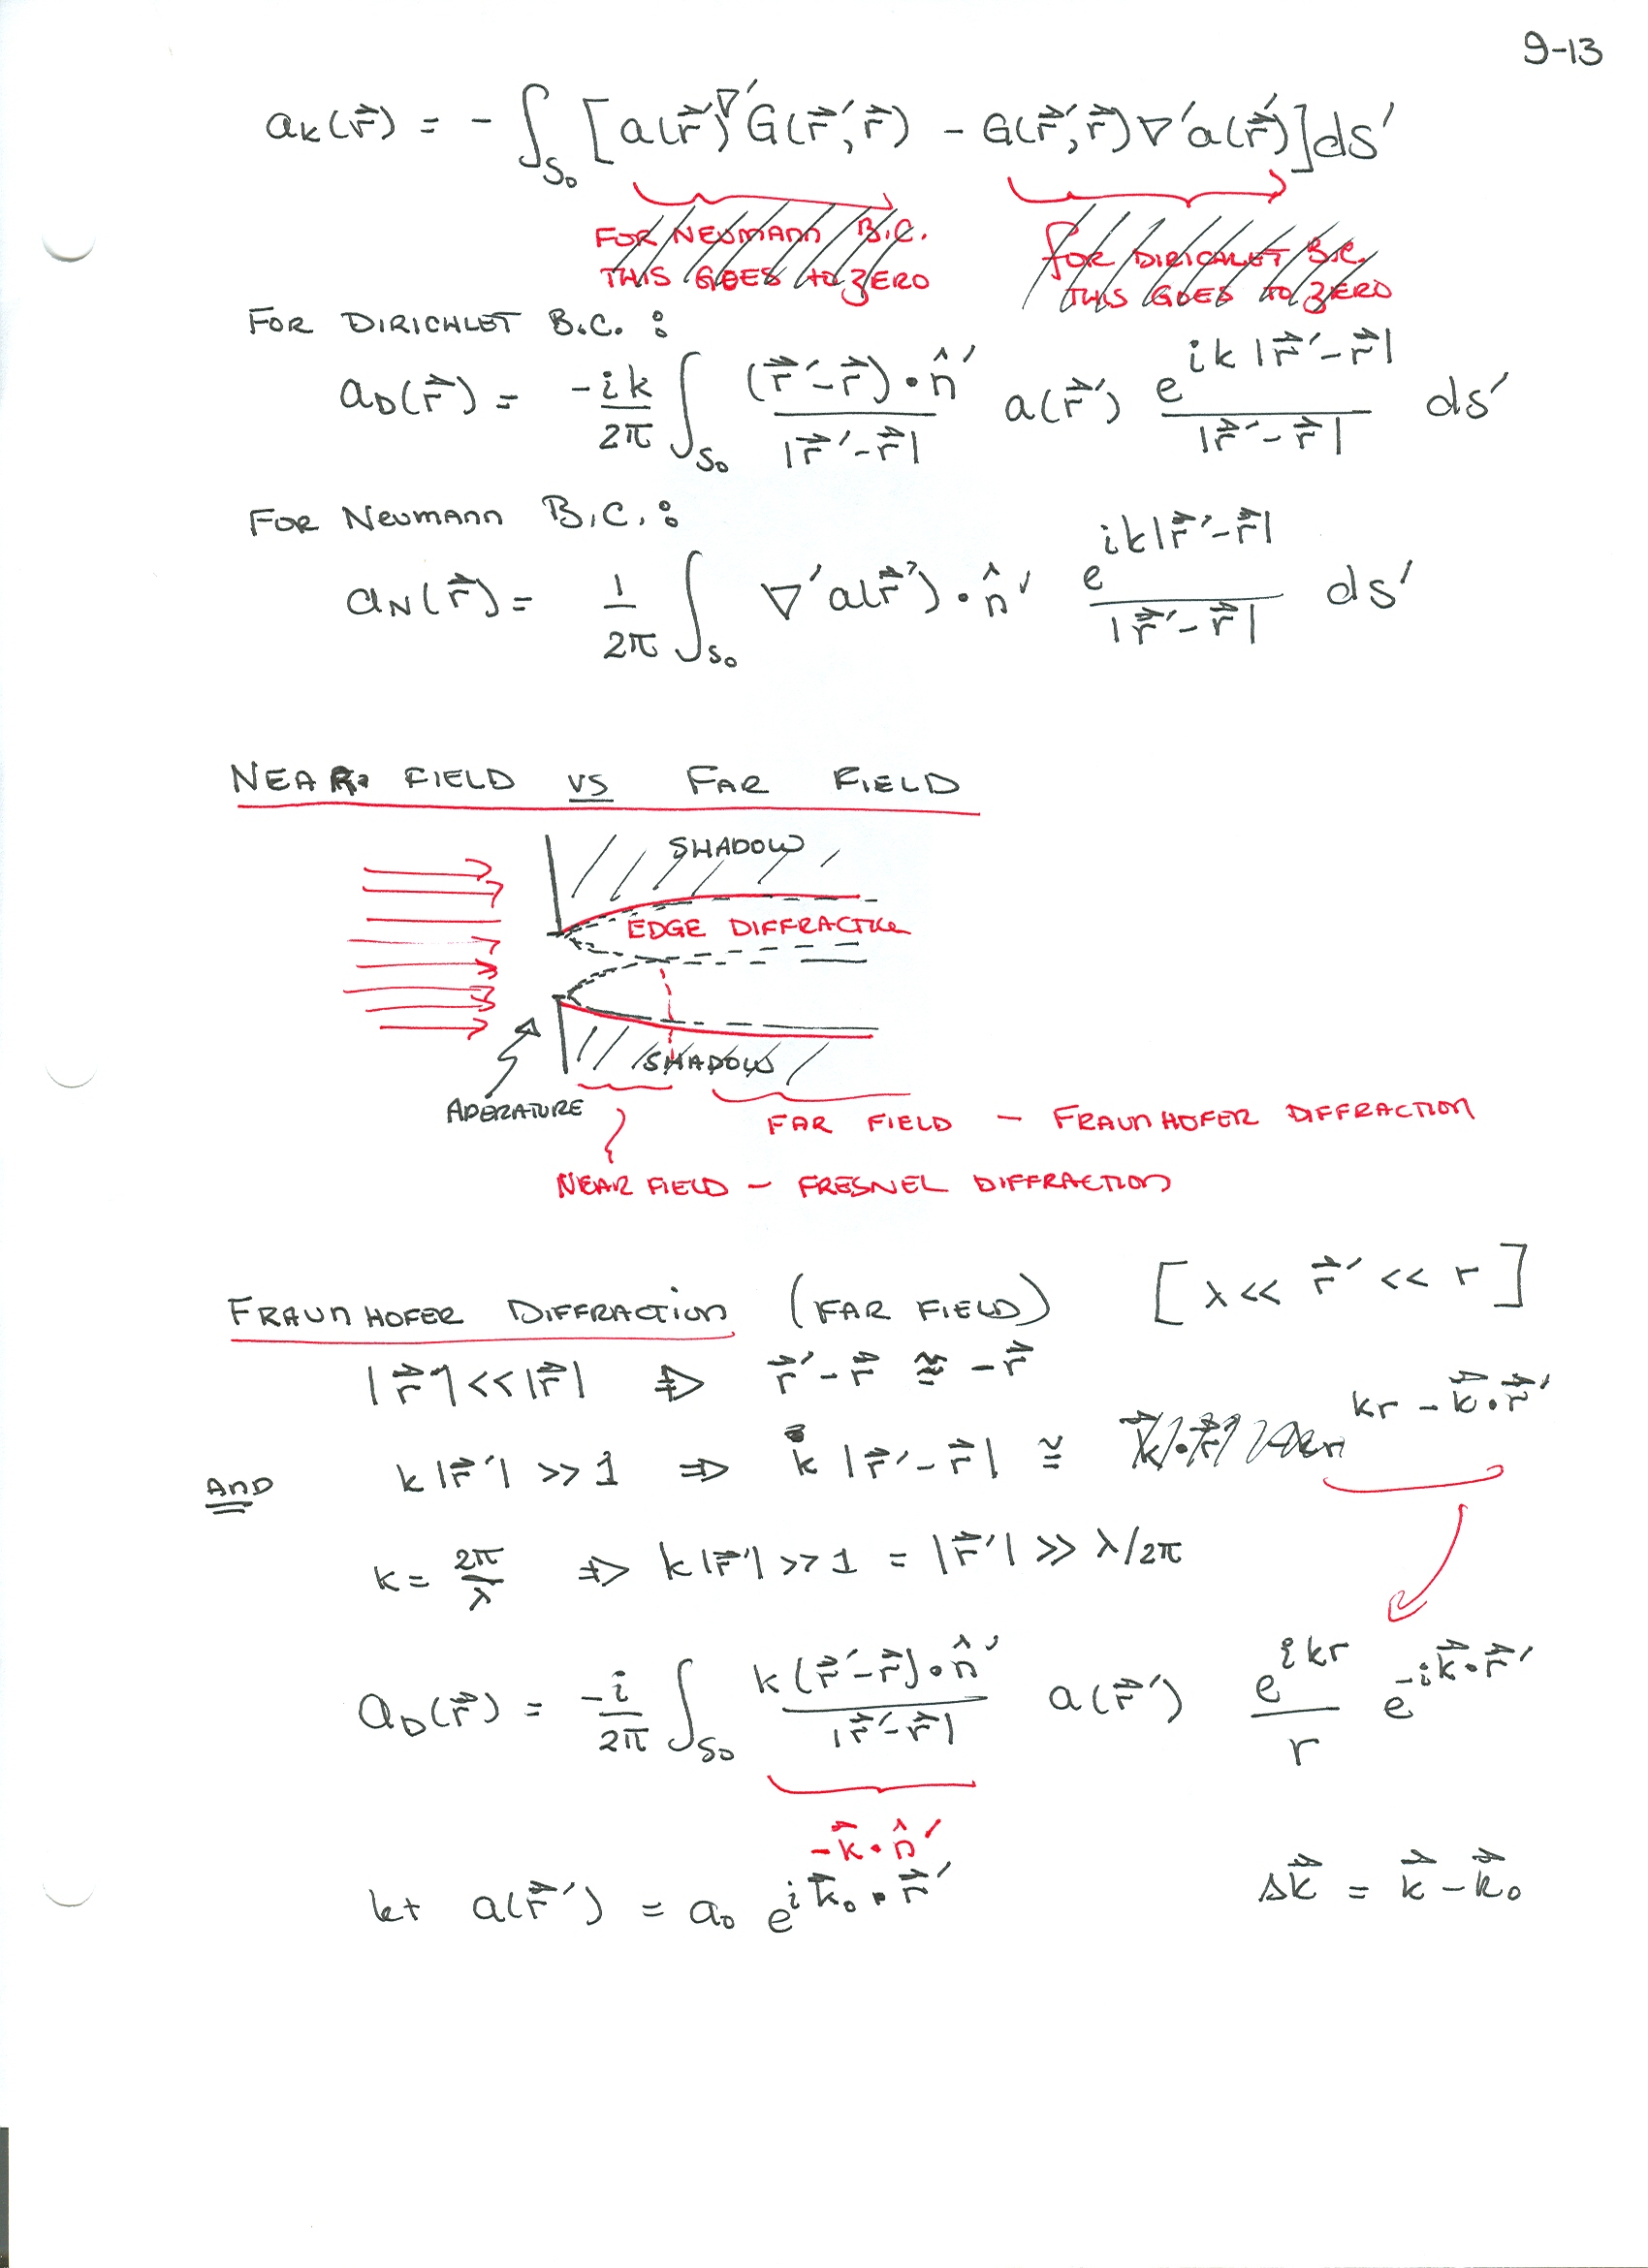 9-13
a_K(r⃗) = - ∫_{S₀} [a(r⃗′)∇′G(r⃗′, r⃗) - G(r⃗′, r⃗)∇′a(r⃗′)]ds′
FOR NEUMANN B.C. THIS GOES TO ZERO
FOR DIRICHLET B.C. THIS GOES TO ZERO
FOR DIRICHLET B.C. :
a_D(r⃗) = -ik/2π ∫_{S₀} (r⃗′-r⃗)•n̂′/|r⃗′-r⃗| a(r⃗′) e^{ik|r⃗′-r⃗|}/|r⃗′-r⃗| ds′
FOR NEUMANN B.C. :
a_N(r⃗) = 1/2π ∫_{S₀} ∇′a(r⃗′)•n̂′ e^{ik|r⃗′-r⃗|}/|r⃗′-r⃗| ds′
NEAR FIELD VS FAR FIELD
SHADOW
EDGE DIFFRACTION
SHADOW
APERATURE
FAR FIELD - FRAUNHOFER DIFFRACTION
NEAR FIELD - FRESNEL DIFFRACTION
FRAUNHOFER DIFFRACTION (FAR FIELD) [λ << r⃗′ << r]
|r⃗′| << |r⃗| ⇒ r⃗′-r⃗ ≅ -r⃗
AND k|r⃗′| >> 1 ⇒ k|r⃗′-r⃗| ≅ kr - k⃗•r⃗′
k = 2π/λ ⇒ k|r⃗′| >> 1 = |r⃗′| >> λ/2π
a_D(r⃗) = -i/2π ∫_{S₀} k(r⃗′-r⃗)•n̂′/|r⃗′-r⃗| a(r⃗′) e^{ikr}/r e^{-ik⃗•r⃗′}
-k⃗•n̂′
let a(r⃗′) = a₀ e^{ik⃗₀•r⃗′} Δk⃗ = k⃗-k⃗₀